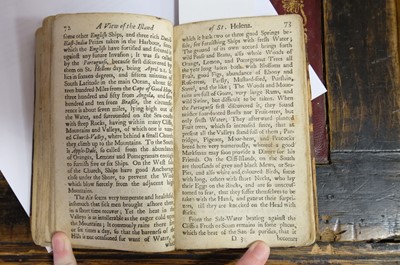 72 A View of the Island
some other English Ships, and three rich Dutch
East-India Prizes taken in the Harbour, since
which the English have fortified and secured it
against any future Invasion; It was so called
by the Portugueses, because first discovered by
them on St. Helens day, being April 22. It
lies in sixteen degrees, and sixteen minutes of
South Latitude in the main Ocean, about fif-
teen hundred Miles from the Cape of Good Hope,
three hundred and fifty from Angola, and five
hundred and ten from Brasile, the circumfe-
rence is about seven miles, lying high out of
the Water, and surrounded on the Sea-coasts
with steep Rocks, having within many Cliffs,
Mountains and Valleys, of which one is named
Church-Valley, where behind a small Church
they climb up to the Mountains. To the South
is Apple-Dale, so called from the abundance
of Oranges, Lemons and Pomegranates enough
to furnish five or six Ships. On the West side
of the Church, Ships have good Anchorage
close under the shore, to prevent the Winds
which blow fiercely from the adjacent high
Mountains.
The Air seems very temperate and healthful,
insomuch that sick men brought ashore there,
in a short time recover; Yet the heat in the
Valleys is as intolerable as the cold upon
the Mountains; it commonly rains there five
or six times a day, so that the barrenness of the
Hills is not occasioned for want of Water, of
of St. Helena. 73
which it hath two or three good Springs be-
side, for furnishing Ships with fresh Water;
The ground of its own accord brings forth
wild Pease and Beans, also whole Woods of
Orange, Lemon, and Pomegranate Trees all
the year long laden both with Blossoms and
Fruit, good Figs, abundance of Ebony and
Rose-trees, Parsly, Mustard-seed, Purslain,
Sorrel, and the like; The Woods and Moun-
tains are full of Goats, very large Rams, and
wild Swine, but difficult to be taken. When
the Portugueses first discovered it, they found
neither four-footed Beasts nor Fruit-trees, but
only fresh Water; They afterward planted
Fruit trees, which so increased since, that at
present all the Valleys stand full of them; Par-
tridges, Pigeons, Moor-hens, and Peacocks
breed here very numerously, whereof a good
Marksman may soon provide a Dinner for his
Friends. On the Cliff-Islands, on the South
are thousands of grey and black Mews, or Sea-
Pies, and also white and coloured Birds, some
with long, others with short Necks, who lay
their Eggs on the Rocks, and are so unaccu-
stomed to fear, that they suffer themselves to be
taken with the Hand, and gaze at their Surpri-
zers, till they are knocked on the Head with
Sticks.
From the Salt-Water beating against the
Cliffs a Froth or Scum remains in some places,
which the heat of the Sun so purifies, that it
D 5 becomes